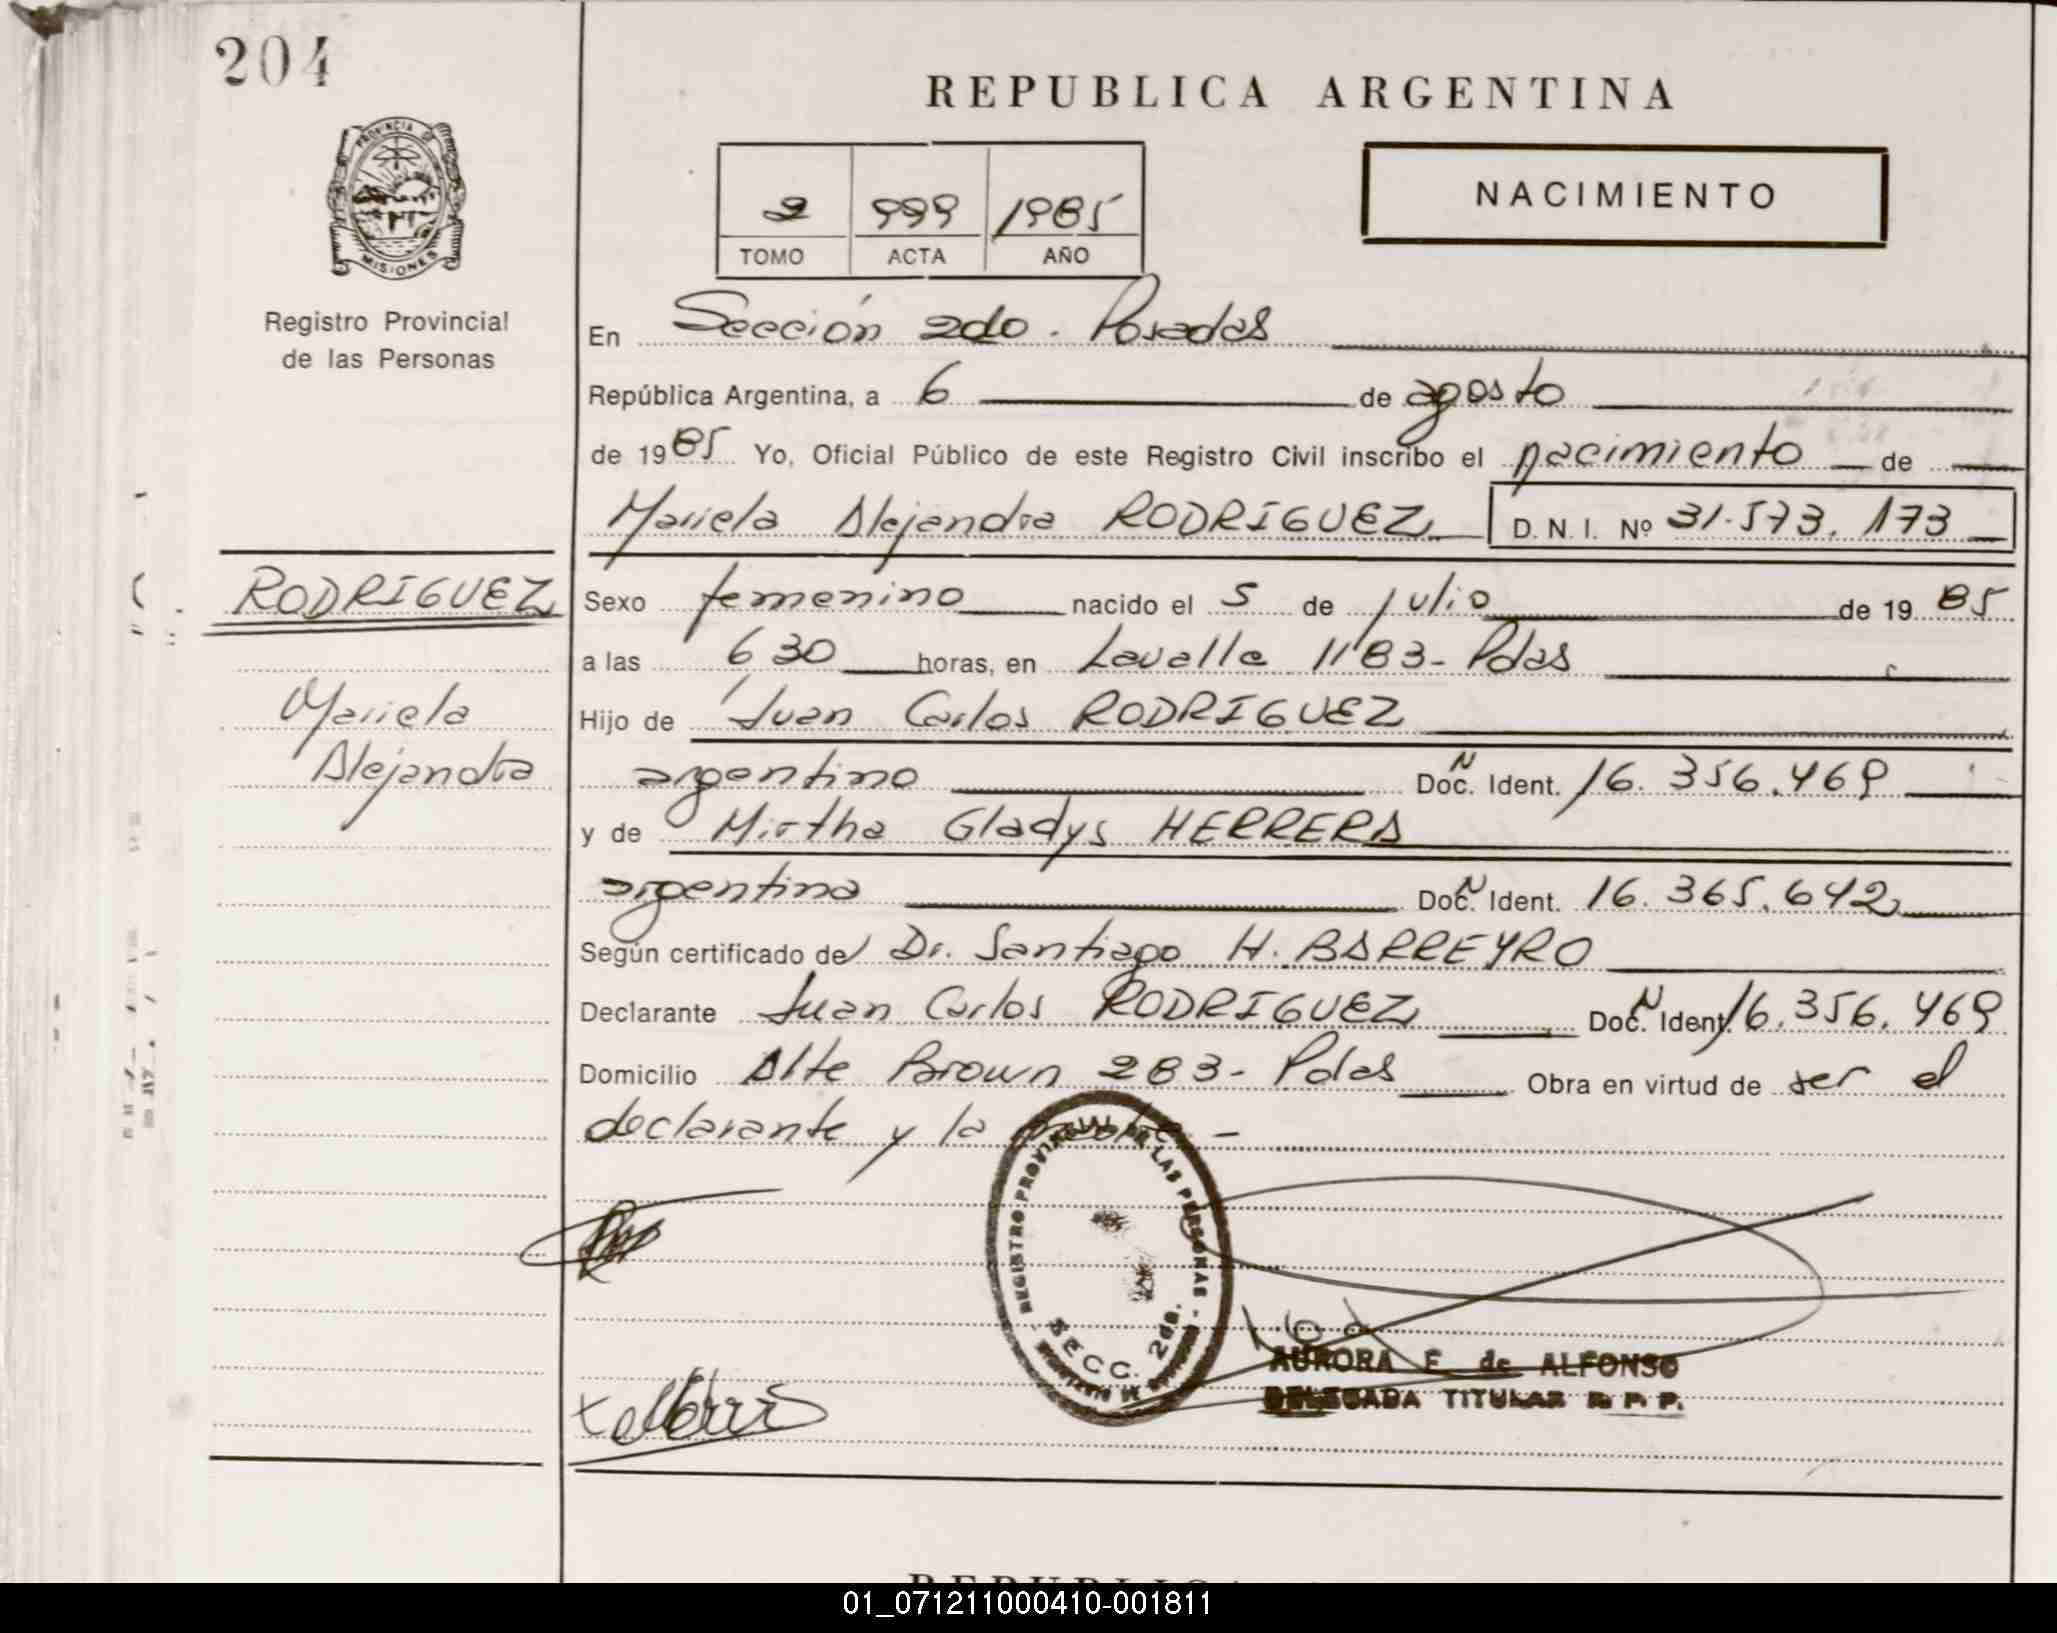 204
REPUBLICA ARGENTINA
PROVINCIA DE
MISIONES
2 999 1985
TOMO ACTA AÑO
NACIMIENTO
Registro Provincial
de las Personas
En Sección 2do - Posadas
República Argentina, a 6 de agosto
de 1985 Yo, Oficial Público de este Registro Civil inscribo el nacimiento de
Mariela Alejandra RODRIGUEZ D. N. I. Nº 31.573.173
RODRIGUEZ
Mariela
Alejandra
Sexo femenino nacido el 5 de julio de 1985
a las 6 30 horas, en Lavalle 1183 - Pdas
Hijo de Juan Carlos RODRIGUEZ
argentino Doc. N Ident. 16.356.469
y de Mirtha Gladys HERRERA
argentina Doc. N Ident. 16.365.642
Según certificado de Dr. Santiago H. BARREYRO
Declarante Juan Carlos RODRIGUEZ Doc. N Ident. 16.356.469
Domicilio Alte Brown 283 - Pdas Obra en virtud de ser el
declarante y la madre -
REGISTRO PROVINCIAL DE LAS PERSONAS
SECC. 2da.
AURORA E de ALFONSO
DELEGADA TITULAR R. P. P.
01_071211000410-001811